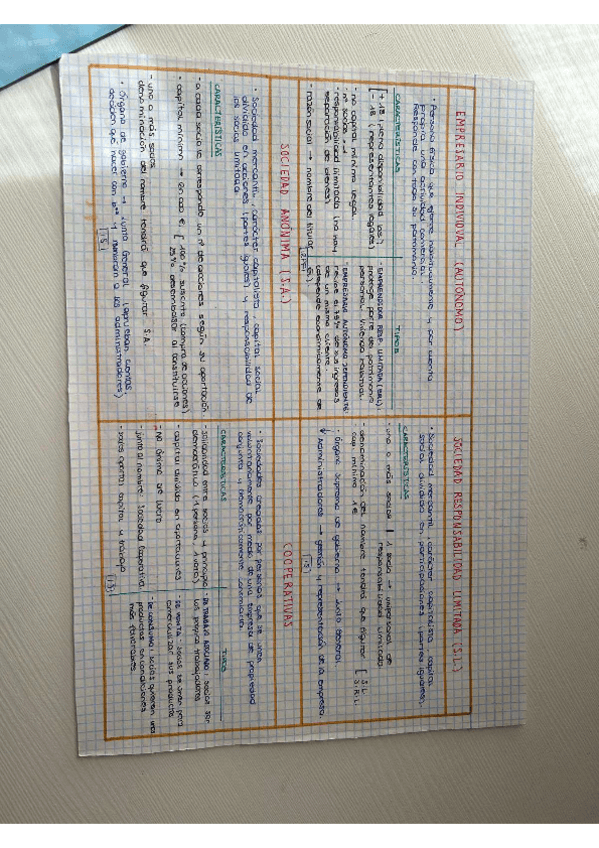 EMPRESARIO INDIVIDUAL (AUTÓNOMO)
· Persona física que ejerce habitualmente, por cuenta
propia una actividad comercial...
Responde con todo su patrimonio.
CARACTERÍSTICAS
+18 (plena disponibilidad bs.)
-18 (representantes legales)
· no capital mínimo legal.
· nº socios → 1
· responsabilidad ilimitada (no hay
separación de bienes)
· razón social → nombre del titular
IRPF
TIPOS
· EMPRENDEDOR RESP. LIMITADA (ERL)
protege parte del patrimonio
personal. Vivienda habitual.
· EMPRESARIO AUTÓNOMO DEPENDIENTE:
recibe el 75% de sus ingresos
de un mismo cliente.
(depende económicamente de
él).
SOCIEDAD RESPONSABILIDAD LIMITADA (S.L.)
· Sociedad mercantil, carácter capitalista, capital
social dividido en participaciones (partes iguales).
CARACTERÍSTICAS
· uno o más socios 1 socio → unipersonal de
responsabilidad limitada.
· denominación del nombre tendrá que figurar S.L.
S.R.L.
· cap. mínimo 1€
· Órgano supremo de gobierno → Junta General
Administradores → gestión y representación de la empresa.
I.S.
SOCIEDAD ANÓNIMA (S.A.)
· Sociedad mercantil, carácter capitalista, capital social
dividido en acciones (partes iguales) y responsabilidad de
los socios limitada
CARACTERÍSTICAS
· a cada socio le corresponde un nº de acciones según su aportación
· capital mínimo → 60.000€ 100% suscrito (compra de acciones)
25% desembolsar al constituirse
· uno o más socios
· denominación del nombre tendrá que figurar S.A.
· Órgano de gobierno → Junta General (aprueban cuentas
deciden que hacer con y nombran a los administradores)
I.S.
COOPERATIVAS
· Sociedades creadas por personas que se unen
voluntariamente por medio de una empresa de propiedad
conjunta y democráticamente controlada
CARACTERÍSTICAS
· solidaridad entre socios → principio
democrático (1 persona, 1 voto)
· capital dividido en aportaciones
· no ánimo de lucro
· junto al nombre: Sociedad Cooperativa
· socios aportan capital y trabajo
I.S.
TIPOS
· DE TRABAJO ASOCIADO: socios son
los propios trabajadores
· DE VENTA: socios se unen para
comercializar sus productos
· DE CONSUMO: socios quieren unos
productos en condiciones
más favorables